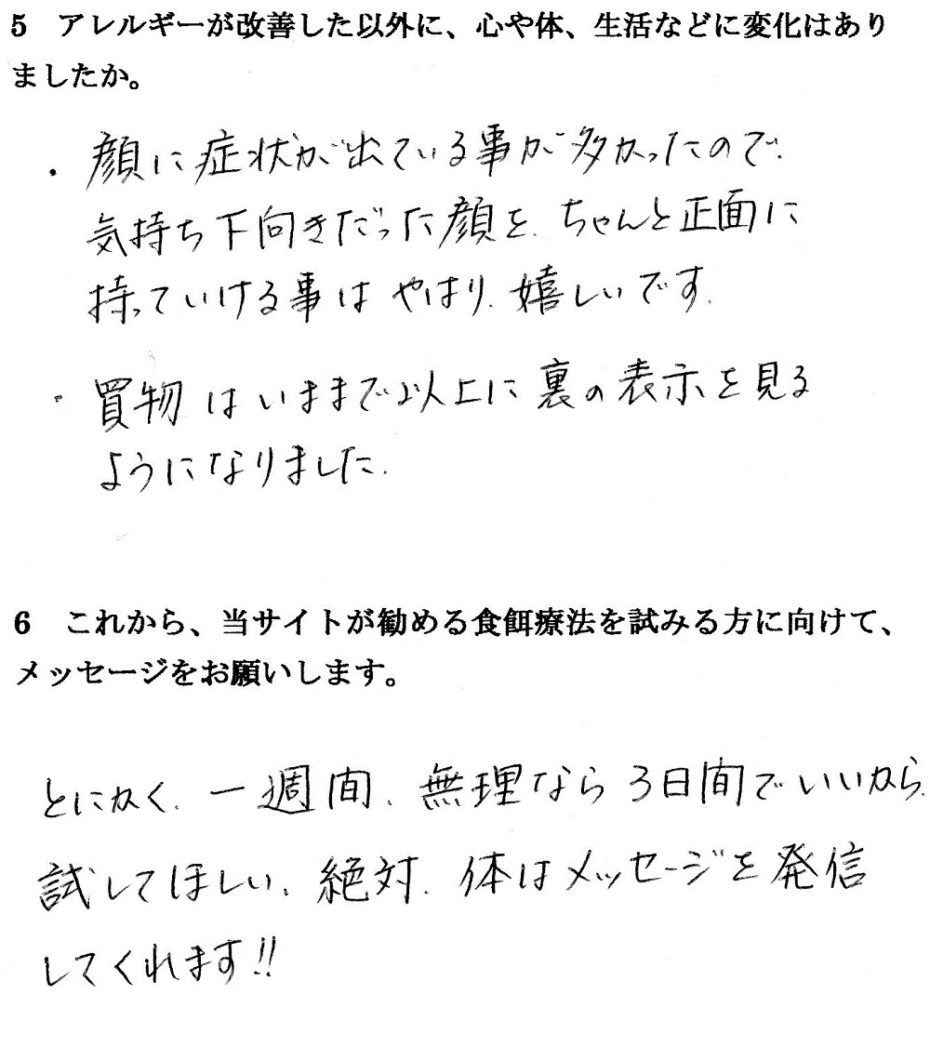 5　アレルギーが改善した以外に、心や体、生活などに変化はあり
ましたか。
・顔に症状が出ている事が多かったので、
気持ち下向きだった顔を、ちゃんと正面に
持っていける事はやはり、嬉しいです。
・買物はいままで以上に裏の表示を見る
ようになりました。
6　これから、当サイトが勧める食餌療法を試みる方に向けて、
メッセージをお願いします。
とにかく、一週間、無理なら3日間でいいから、
試してほしい、絶対、体はメッセージを発信
してくれます!!